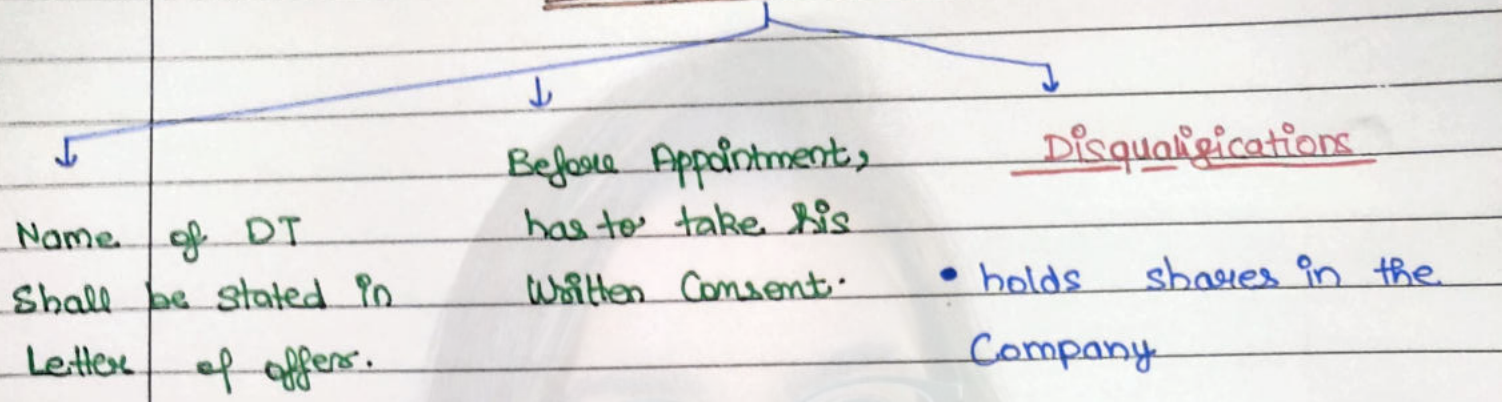 Name of DT
Shall be stated in
Letter of offers.
Before Appointment,
has to take his
Written Consent.
Disqualifications
• holds shares in the
Company